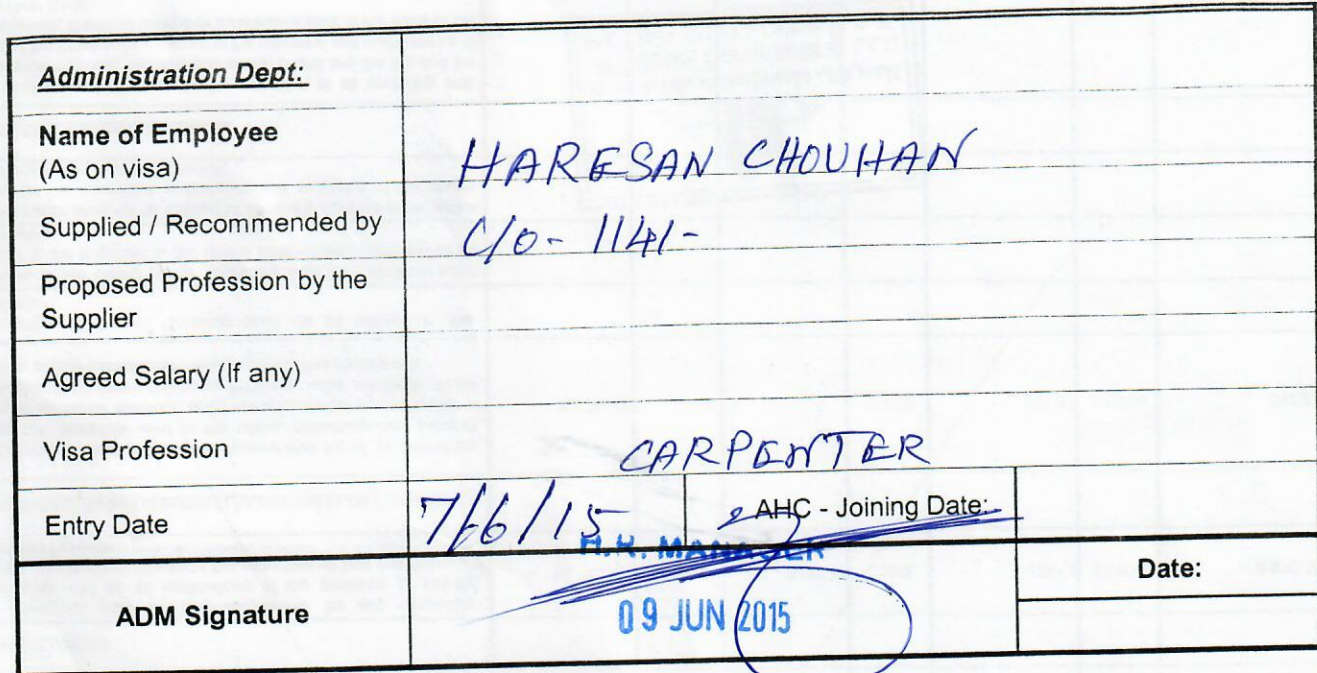 Administration Dept:
Name of Employee
(As on visa)
HARESAN CHOUHAN
Supplied / Recommended by
C/O - 1141 -
Proposed Profession by the
Supplier
Agreed Salary (If any)
Visa Profession
CARPENTER
Entry Date
7/6/15
AHC - Joining Date:
H.R. MANAGER
ADM Signature
09 JUN 2015
Date: